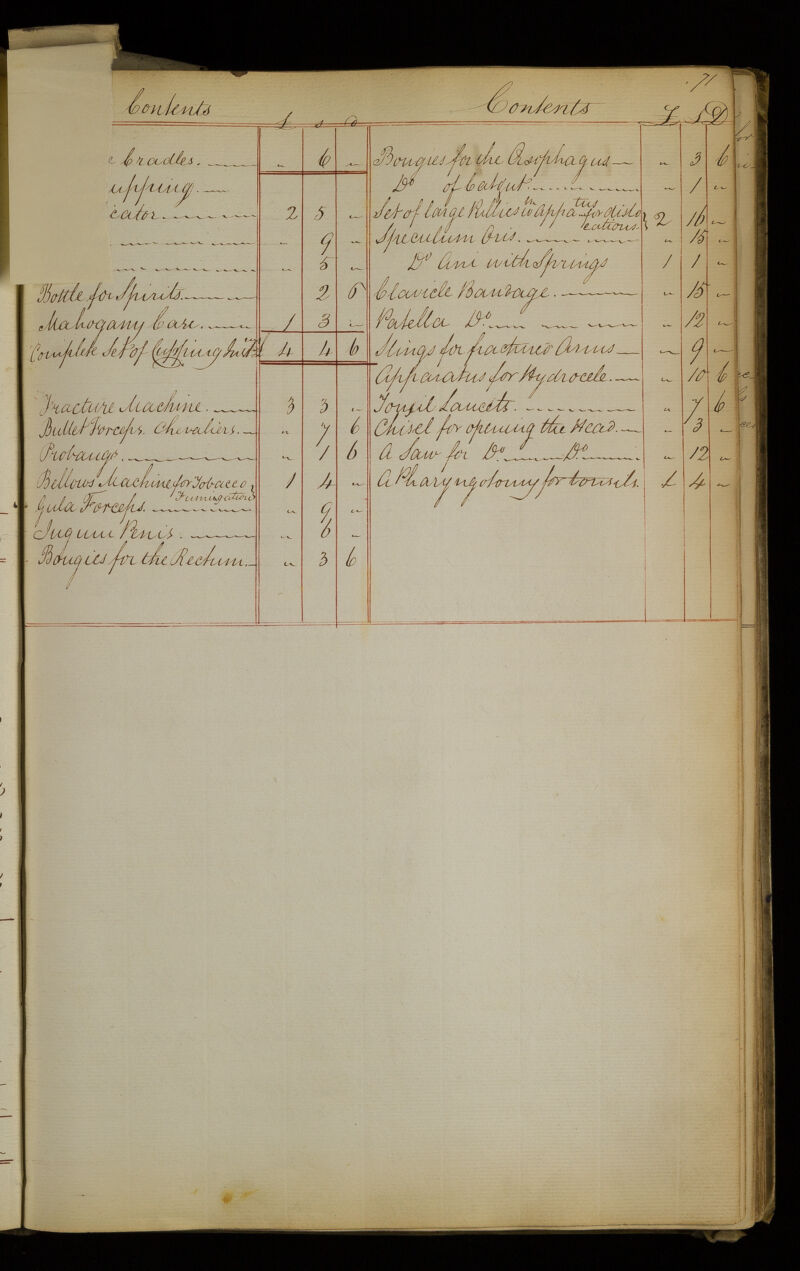 71
Contents £ s d
Cradles. " 6 "
upping.
cator 2 5 "
" 9 "
" 5 "
Bottle for Spirits 2 6
Mahogany Case. 1 3 "
Complete Set of Cupping Insts 4 4 6
Fracture Machine. 3 3 "
Bullet Forceps. Chevaliers. " 7 6
Probangs. " 1 6
Bellows Machine for Tobacco 1 4 "
Fumugation
Gula Forceps. " 9 "
Jugum Penis. " 6 "
Bougies for the Rectum. " 3 6
Contents £ S D
Bougies for the Œsophagus " 3 6
Do of Catgut " 1 "
Set of large Pullies wth Appa-tus for dislo 2 16 "
cations.
Speculum Oris. " 15 "
Do Ani with Springs 1 1 "
Clavicle Bandage. " 15 "
Patella Do " 12 "
Slings for fractured Arms " 9 "
Apparatus for Hydrocele. " 10 6
Tonsil Lancets. " 7 6
Chisel for opening the Head. " 3 "
A Saw for Do Do " 12 "
A Pharyngotomy for tonsils. 4 "